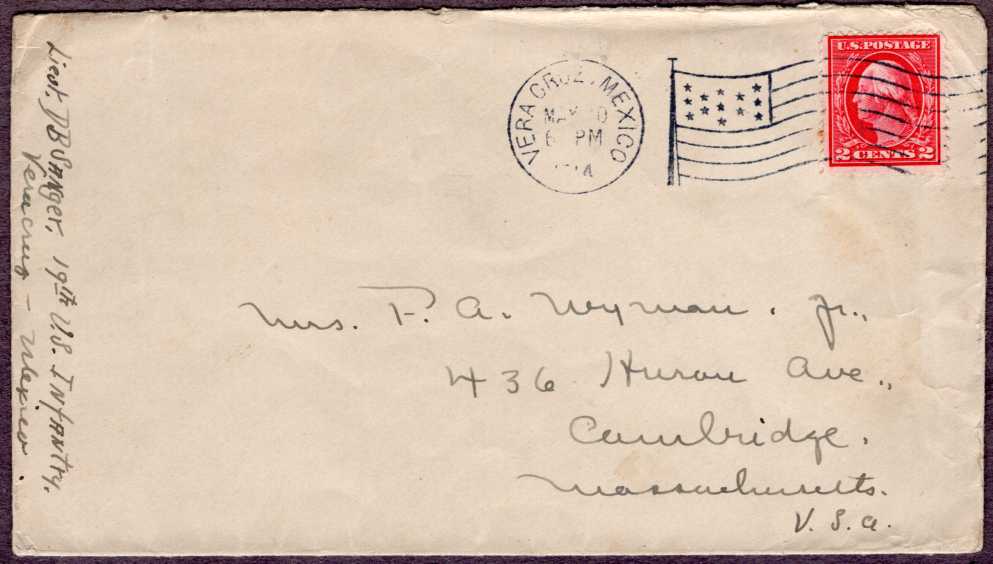 Lieut. DB Sanger, 19th U.S. Infantry.
Veracruz – Mexico.
VERA CRUZ, MEXICO
PM
U.S. POSTAGE
2 CENTS 2
Mrs. F. A. Wyman, Jr.,
436 Huron Ave.,
Cambridge.
Massachusetts.
U. S. a.